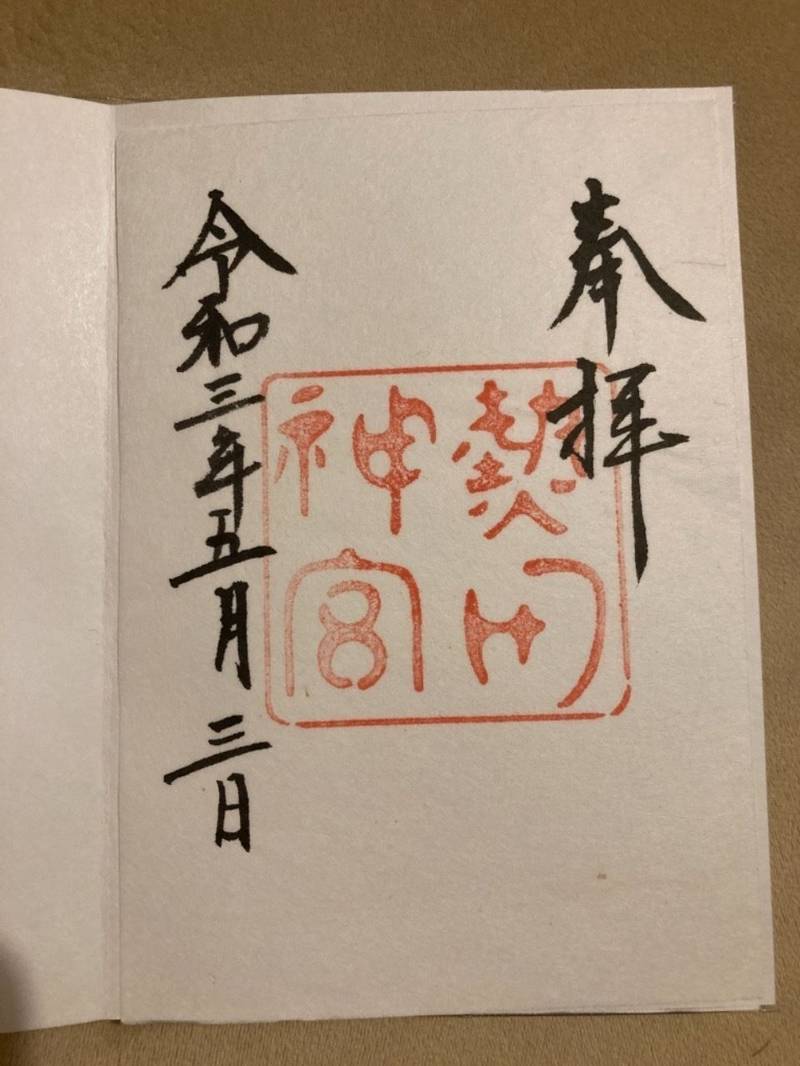 奉拝
熱田
神宮
令和三年五月三日